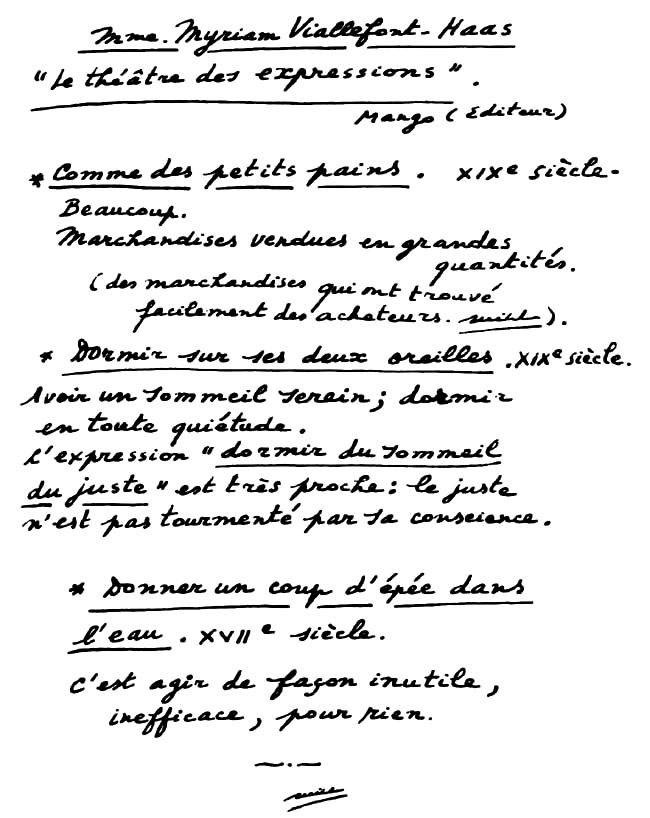 Mme. Myriam Viallefont-Haas
"Le théâtre des expressions".
Mango (Editeur)
* Comme des petits pains. XIXe siècle.
Beaucoup.
Marchandises vendues en grandes
quantités.
(des marchandises qui ont trouvé
facilement des acheteurs. ).
* Dormir sur ses deux oreilles. XIXe siècle.
Avoir un sommeil serein; dormir
en toute quiétude.
L'expression "dormir du sommeil
du juste" est très proche: le juste
n'est pas tourmenté par sa conscience.
* Donner un coup d'épée dans
l'eau. XVIIe siècle.
C'est agir de façon inutile,
inefficace, pour rien.